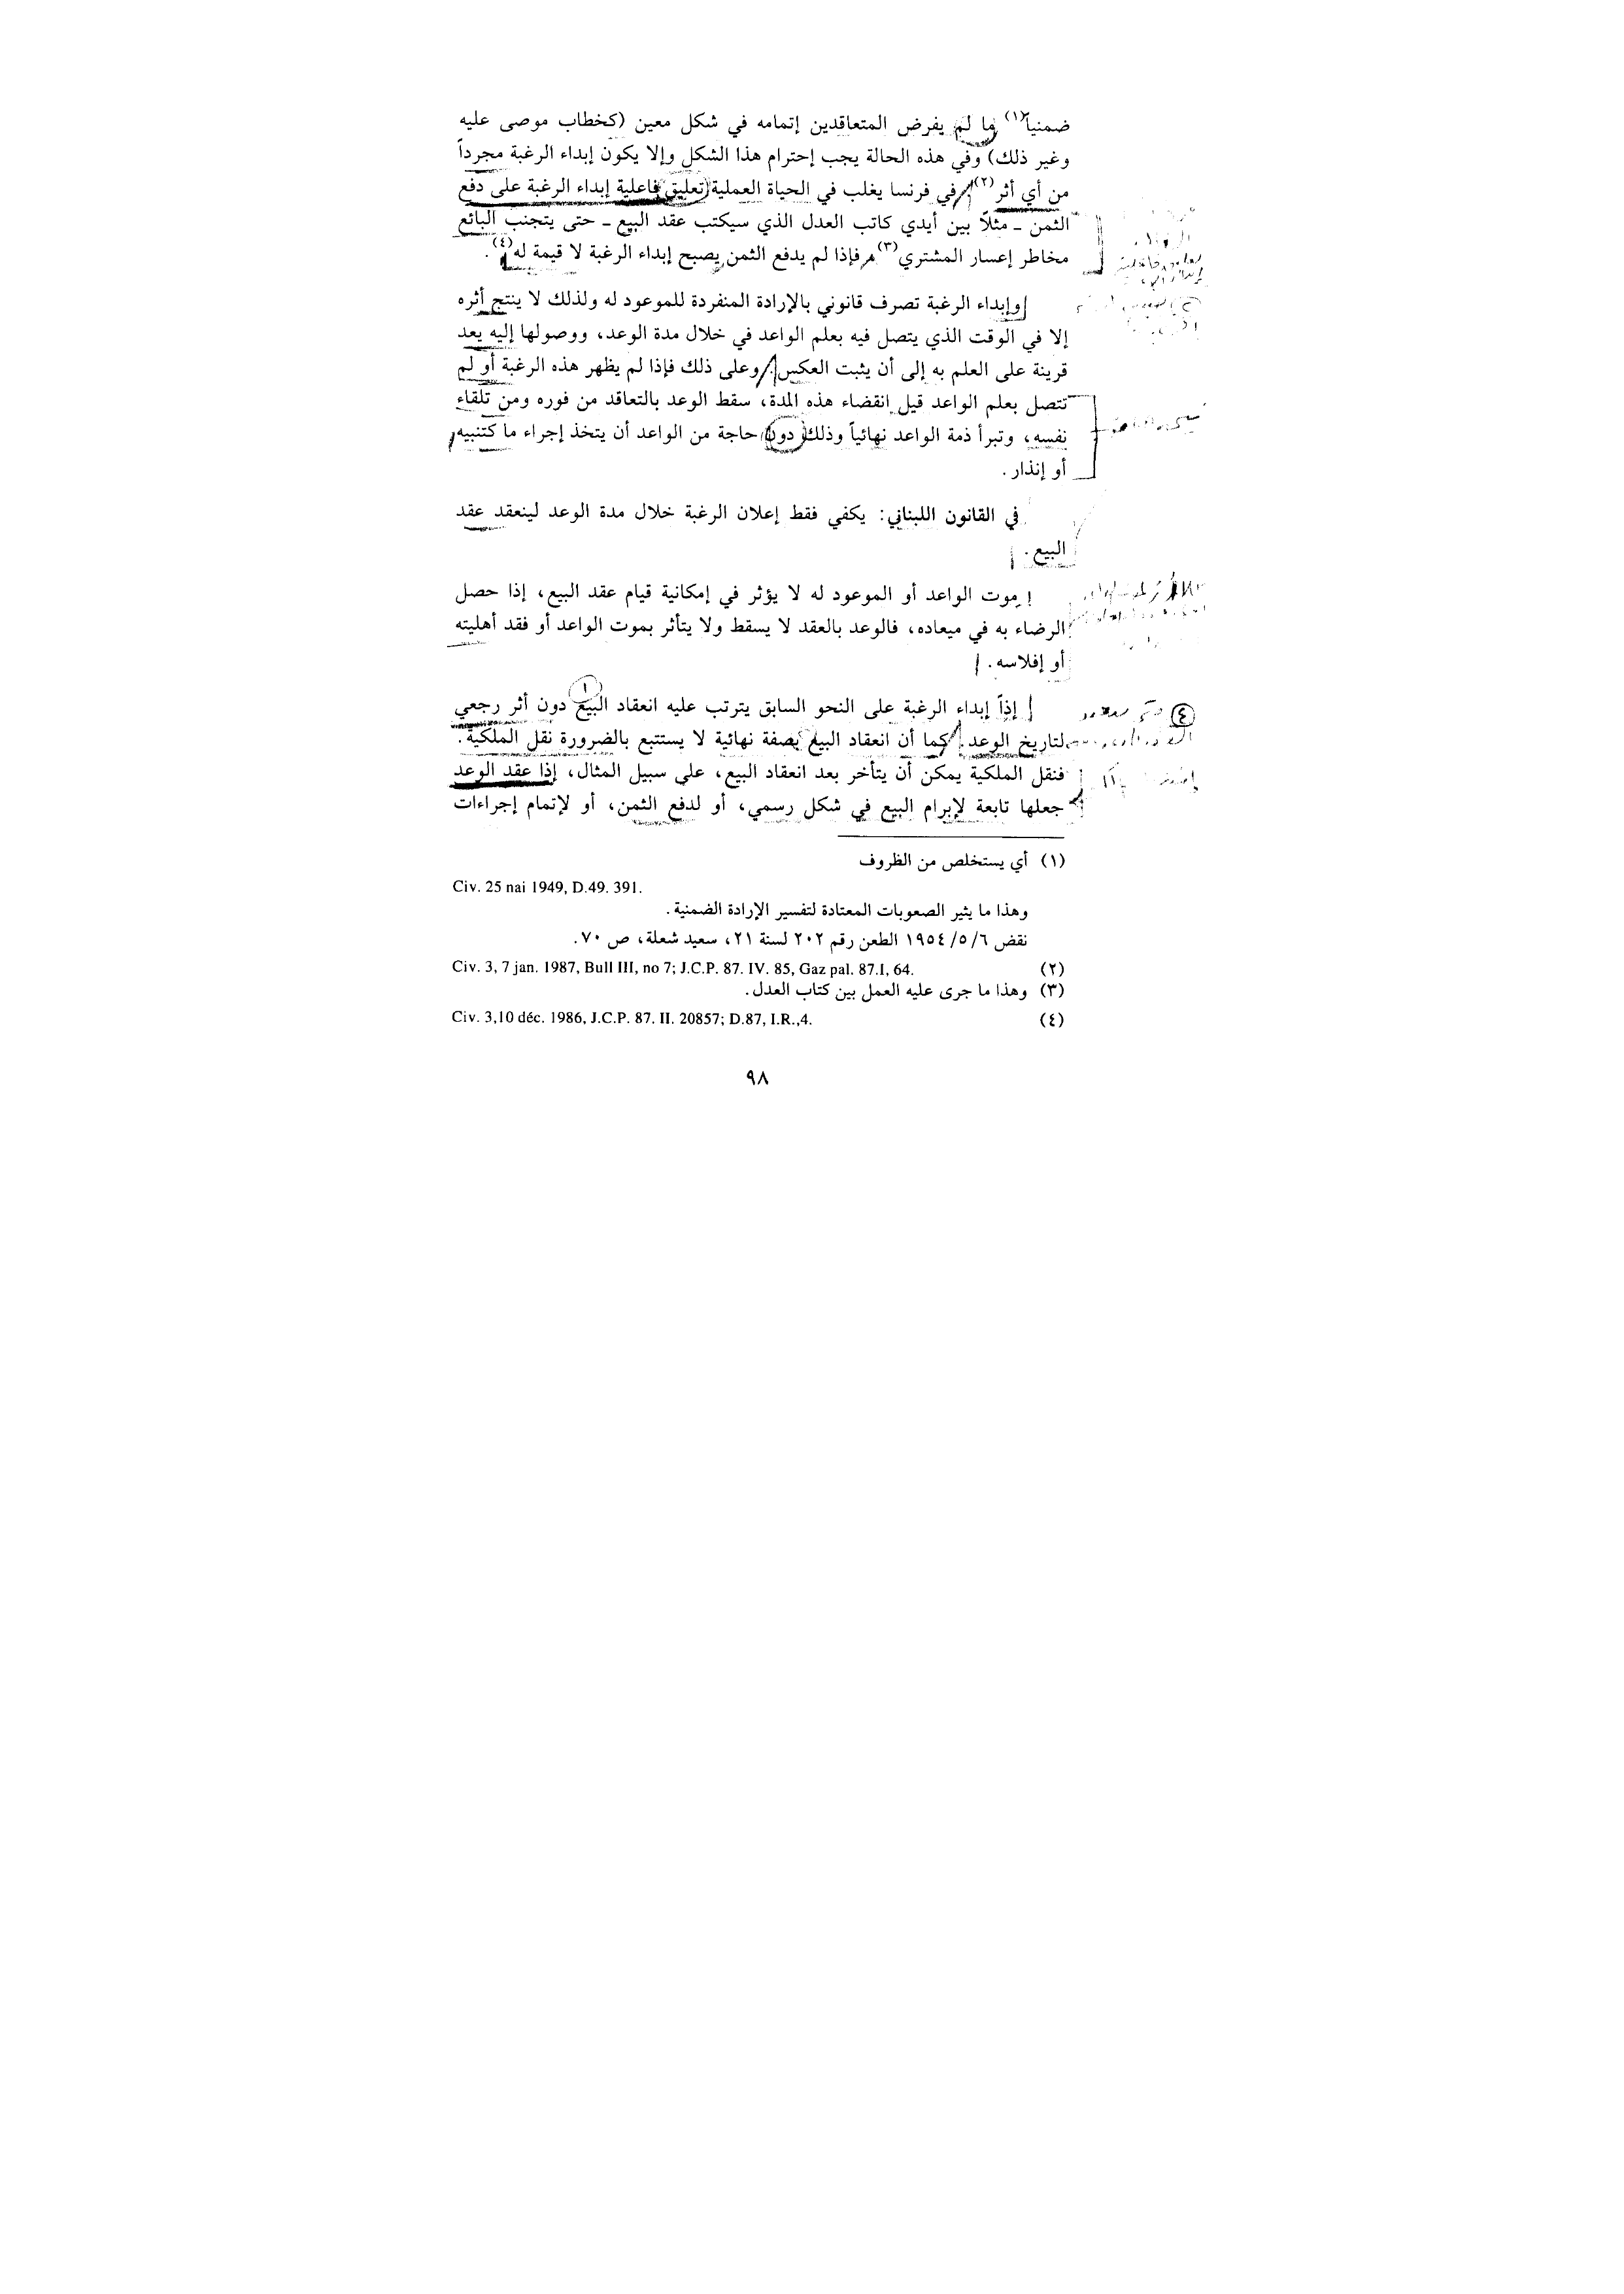 ضمنياً(١) ما لم يفرض المتعاقدين إتمامه في شكل معين (كخطاب موصى عليه
وغير ذلك) وفي هذه الحالة يجب إحترام هذا الشكل وإلا يكون إبداء الرغبة مجرداً
من أي أثر(٢) في فرنسا يغلب في الحياة العملية تعليق فاعلية إبداء الرغبة على دفع
الثمن ـ مثلاً بين أيدي كاتب العدل الذي سيكتب عقد البيع ـ حتى يتجنب البائع
مخاطر إعسار المشتري(٣) فإذا لم يدفع الثمن يصبح إبداء الرغبة لا قيمة له(٤).
وإبداء الرغبة تصرف قانوني بالإرادة المنفردة للموعود له ولذلك لا ينتج أثره
إلا في الوقت الذي يتصل فيه بعلم الواعد في خلال مدة الوعد، ووصولها إليه يعد
قرينة على العلم به إلى أن يثبت العكس. وعلى ذلك فإذا لم يظهر هذه الرغبة أو لم
تتصل بعلم الواعد قبل انقضاء هذه المدة، سقط الوعد بالتعاقد من فوره ومن تلقاء
نفسه، وتبرأ ذمة الواعد نهائياً وذلك دون حاجة من الواعد أن يتخذ إجراء ما كتنبيه
أو إنذار.
في القانون اللبناني: يكفي فقط إعلان الرغبة خلال مدة الوعد لينعقد عقد
البيع.
موت الواعد أو الموعود له لا يؤثر في إمكانية قيام عقد البيع، إذا حصل
الرضاء به في ميعاده، فالوعد بالعقد لا يسقط ولا يتأثر بموت الواعد أو فقد أهليته
أو إفلاسه.
إذاً إبداء الرغبة على النحو السابق يترتب عليه انعقاد البيع دون أثر رجعي
لتاريخ الوعد. كما أن انعقاد البيع بصفة نهائية لا يستتبع بالضرورة نقل الملكية.
فنقل الملكية يمكن أن يتأخر بعد انعقاد البيع، على سبيل المثال، إذا عقد الوعد
جعلها تابعة لإبرام البيع في شكل رسمي، أو لدفع الثمن، أو لإتمام إجراءات
(١) أي يستخلص من الظروف
Civ. 25 nai 1949, D.49. 391.
وهذا ما يثير الصعوبات المعتادة لتفسير الإرادة الضمنية.
نقض ٦/ ٥/ ١٩٥٤ الطعن رقم ٢٠٢ لسنة ٢١، سعيد شعلة، ص ٧٠.
(٢) Civ. 3, 7 jan. 1987, Bull III, no 7; J.C.P. 87. IV. 85, Gaz pal. 87.I, 64.
(٣) وهذا ما جرى عليه العمل بين كتاب العدل.
(٤) Civ. 3,10 déc. 1986, J.C.P. 87. II. 20857; D.87, I.R.,4.
٩٨